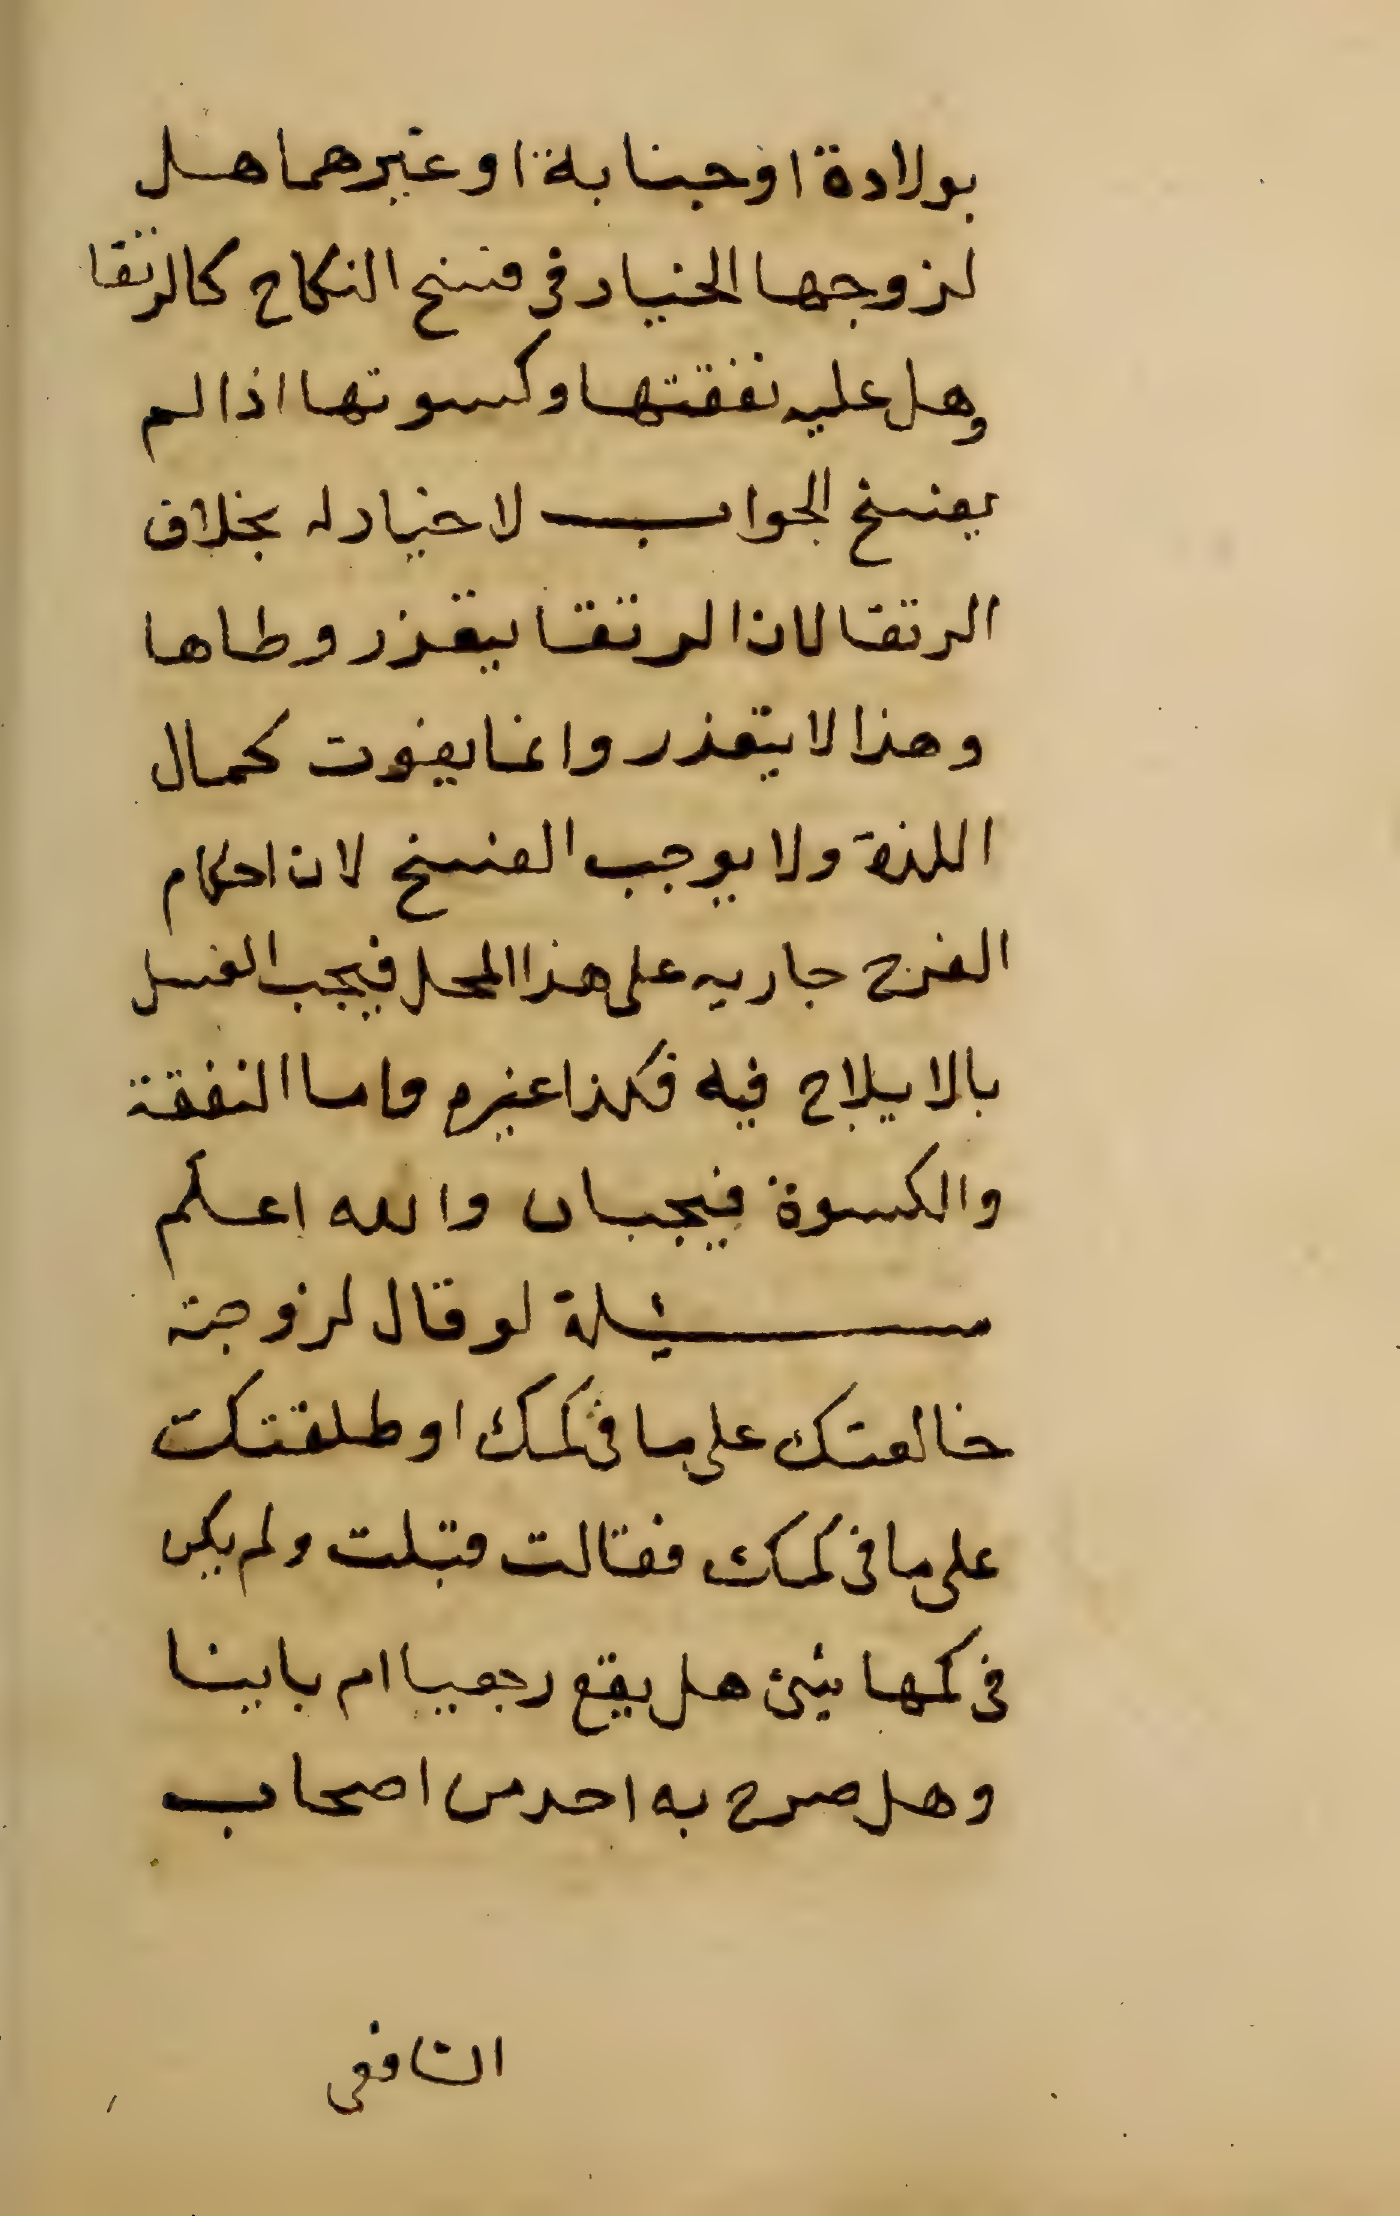 بولادة او جنابة او غيرهما هل
لزوجها الخيار فى فسخ النكاح كالرتقا
وهل عليه نفقتها وكسوتها اذا لم
يفسخ الجواب لا خيار له بخلاف
الرتقا لان الرتقا يتعذر وطاها
وهذا لا يتعذر وانما يفوت كمال
اللذة ولا يوجب الفسخ لان احكام
الفرج جاريه على هذا المحل فيجب الغسل
بالايلاج فيه فكذا غيره واما النفقة
والكسوة فيجبان والله اعلم
مسئلة لو قال لزوجته
خالعتك على ما فى كمك او طلقتك
على ما فى كمك فقالت قبلت ولم يكن
فى كمها شئ هل يقع رجعيا ام باينا
وهل صرح به احد من اصحاب
الشافعى